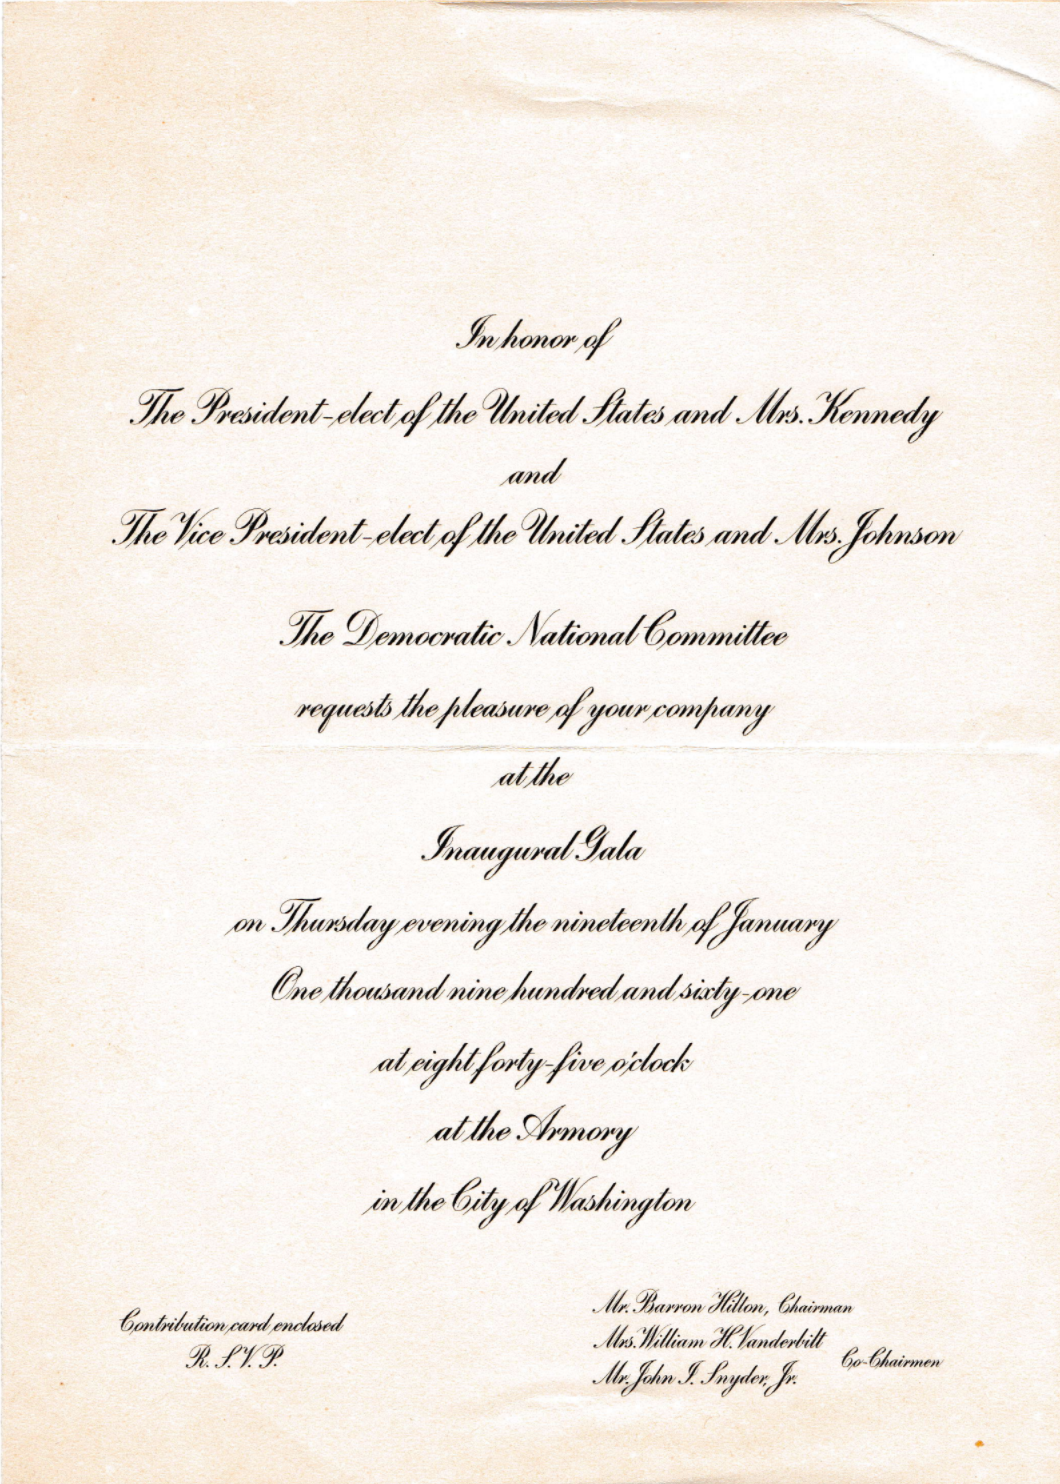 In honor of
The President-elect of the United States and Mrs. Kennedy
and
The Vice President-elect of the United States and Mrs. Johnson
The Democratic National Committee
requests the pleasure of your company
at the
Inaugural Gala
on Thursday evening the nineteenth of January
One thousand nine hundred and sixty-one
at eight forty-five o'clock
at the Armory
in the City of Washington
Contribution card enclosed
R. S. V. P.
Mr. Barron Hilton, Chairman
Mrs. William H. Vanderbilt
Mr. John I. Snyder, Jr.
Co-Chairmen